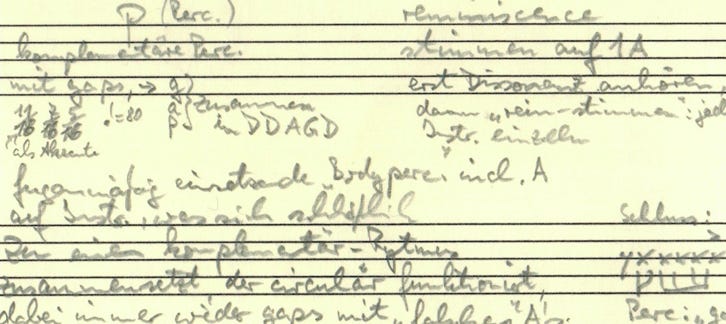 P (Perc.)
komplementäre Perc.
mit gaps, → g)
11 7 5
16 16 16 ♩=80 a } zusammen
p in DDAGD
als Akzente
reminiscence
stimmen auf 1A
erst Dissonanz anhören,
dann „rein-stimmen": jed
Instr. einzeln
fugenmäßig einsetzende „Bodyperc." incl. A
auf Instr., was sich schließlich
zu einem komplementär-Rytmus
zusammensetzt der circulär funktioniert,
dabei immer wieder gaps mit „falschen" A's.
Schluss:
Perc.: